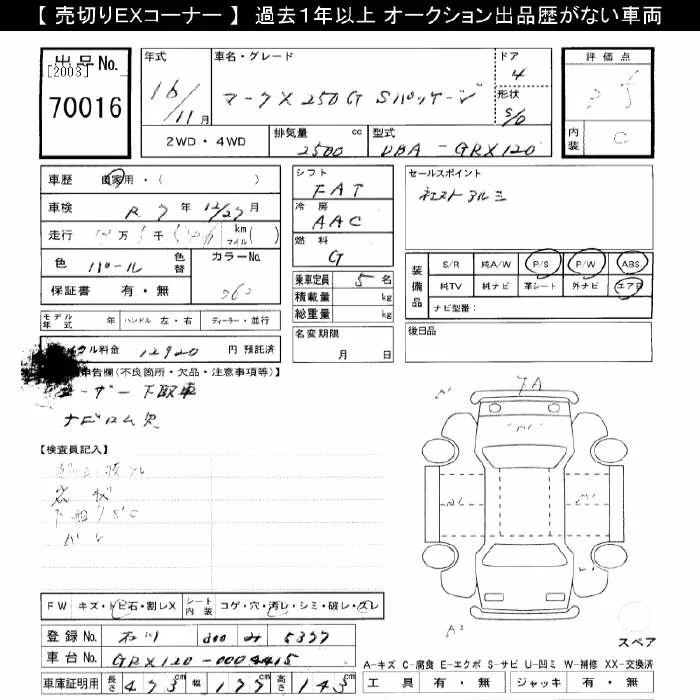 【 売切りEXコーナー 】 過去1年以上 オークション出品歴がない車両
出品No.
[2003]
70016
年式
16/11月
車名・グレード
マークX 250G Sパッケージ
ドア
4
形状
S/D
2WD・4WD
排気量 cc
2500
型式
DBA-GRX120
評価点
内装
C
車歴 自家用・( )
車検 R7年12/27月
走行 万 千 km マイル( )
色 パール 色替
カラーNo.
062
保証書 有・無
シフト
FAT
冷房
AAC
燃料
G
乗車定員 5名
積載量 kg
総重量 kg
セールスポイント
社外アルミ
装備品
S/R 純A/W P/S P/W ABS
純TV 純ナビ 革シート 外ナビ エアB
ナビ型番:
モデル年式 年 ハンドル 左・右 ディーラー・並行
名変期限
月 日
後日品
リサイクル料金 12920 円 預託済
申告欄(不良箇所・欠品・注意事項等)】
ユーザー下取車
ナビロム欠
【検査員記入】
下廻りサビ
7A
A1
A2
FW キズ・トビ石・割レX
シート内装 コゲ・穴・汚レ・シミ・破レ・スレ
登録No. 石川 300 み 5377
車台No. GRX120-0004415
車庫証明用 長さ 473cm 幅 177cm 高さ 143cm
スペア
A-キズ C-腐食 E-エクボ S-サビ U-凹ミ W-補修 XX-交換済
工具 有・無 ジャッキ 有・無